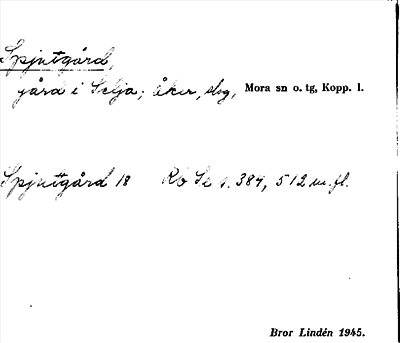 Spjutgård,
gård i Selja; åker, slog, Mora sn o. tg, Kopp. l.
Spjutgård 18 Rb Se s. 384, 512 m. fl.
Bror Lindén 1945.